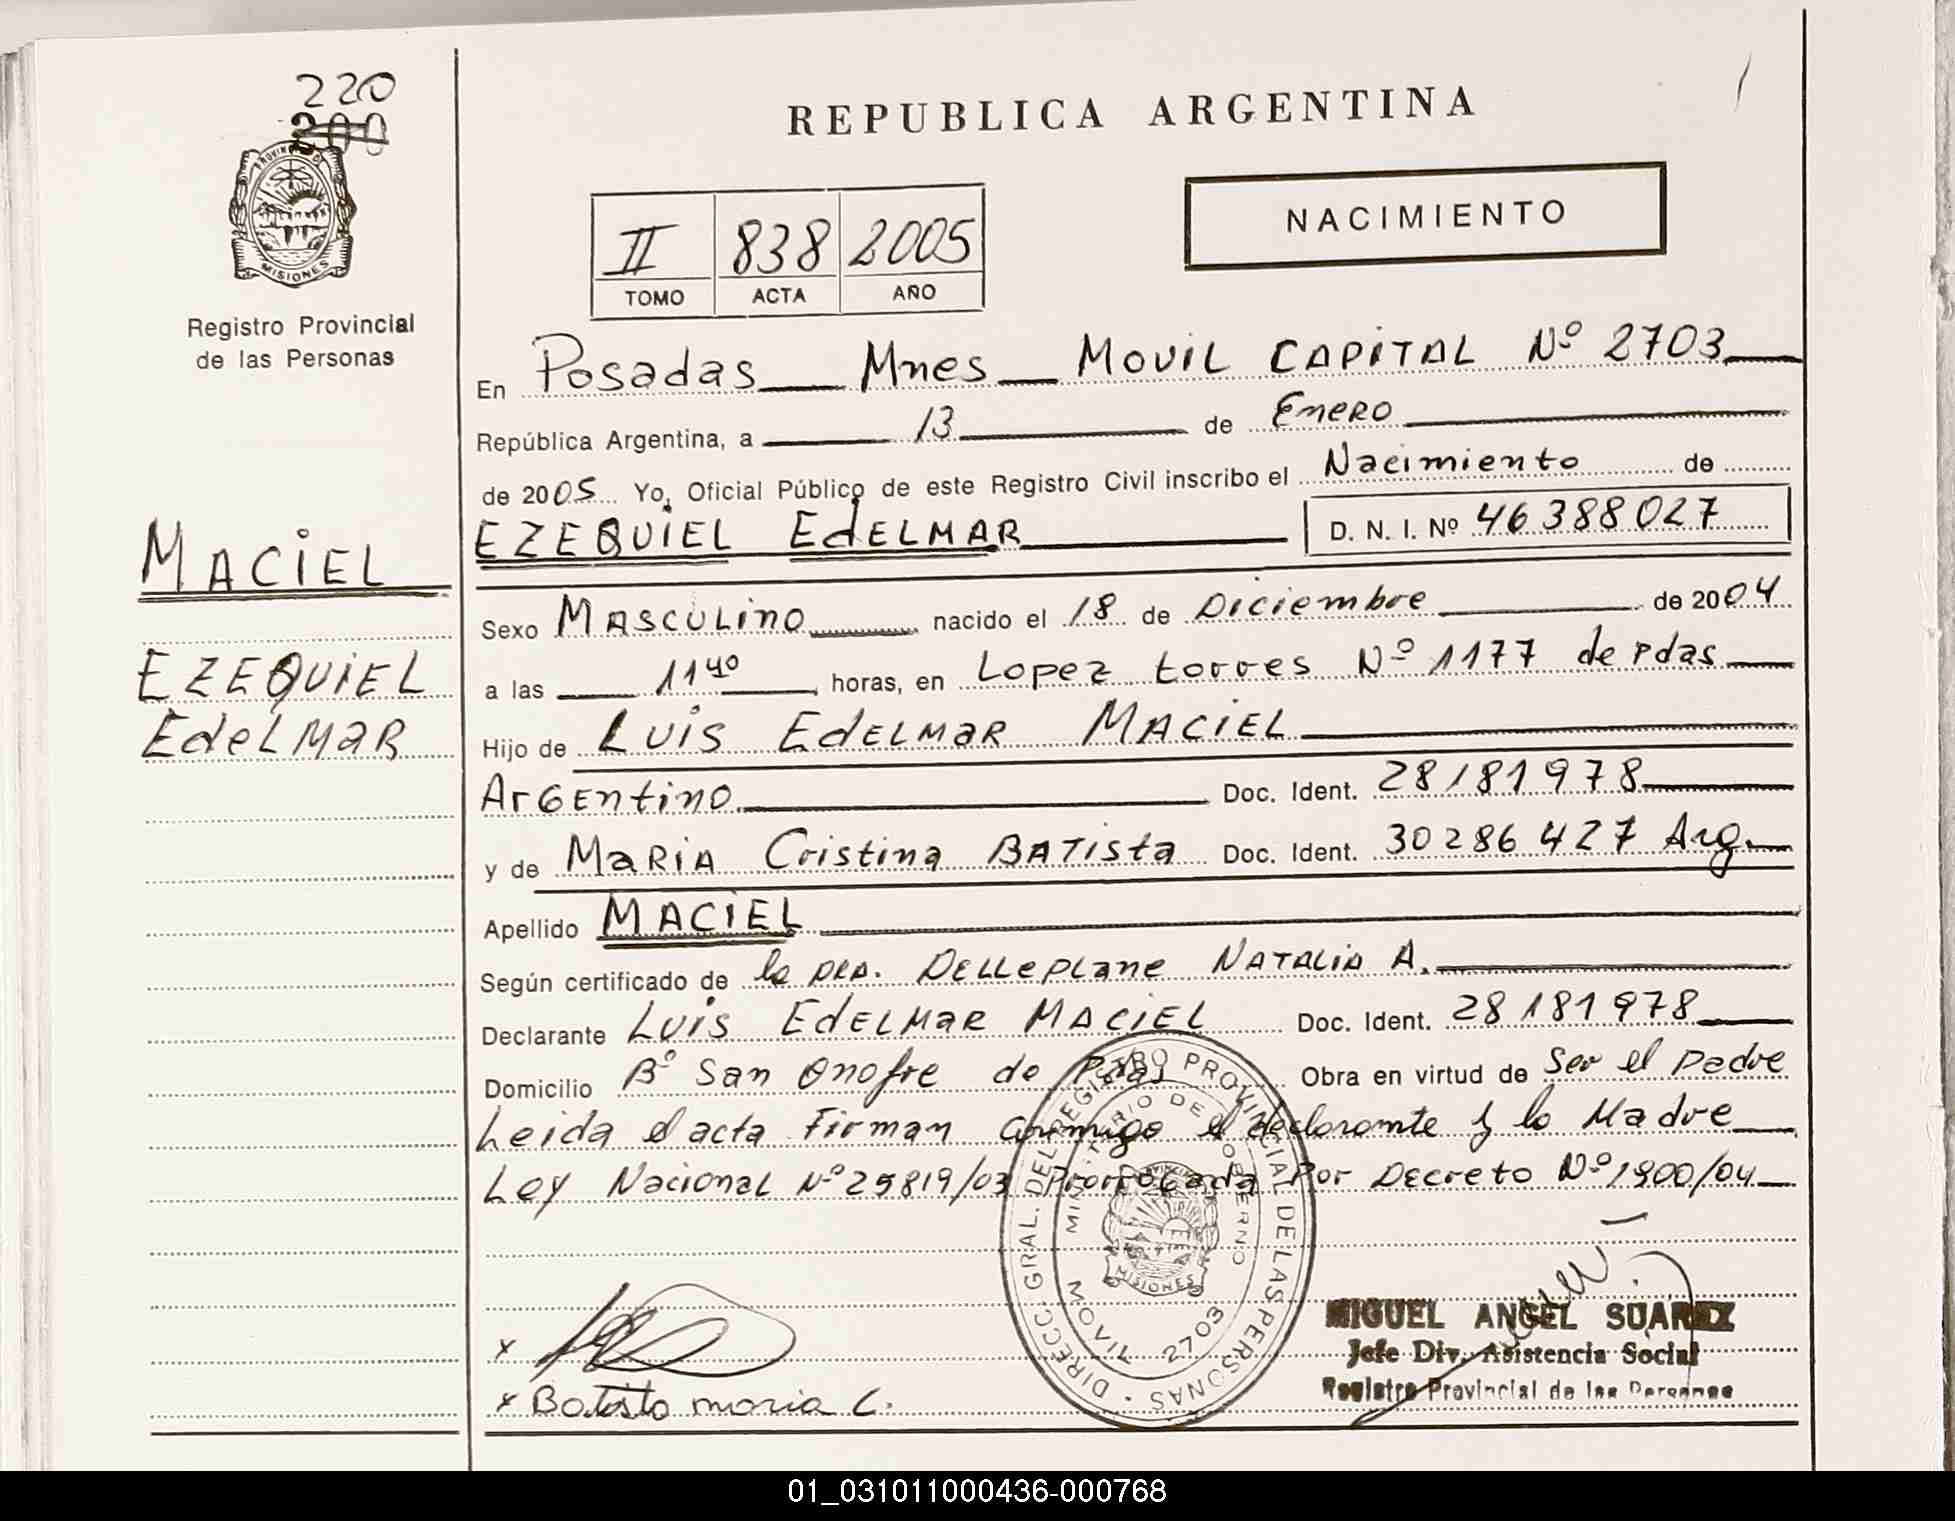 220
200
PROVINCIA D
MISIONES
Registro Provincial
de las Personas
MACIEL
EZEQUIEL
EdeLMAR
REPUBLICA ARGENTINA
NACIMIENTO
II 838 2005
TOMO ACTA AÑO
En Posadas Mnes MOVIL CAPITAL Nº 2703
República Argentina, a 13 de ENERO
de 2005 Yo, Oficial Público de este Registro Civil inscribo el Nacimiento de
EZEQUIEL EdELMAR D. N. I. Nº 46388027
Sexo MASCULINO nacido el 18 de Diciembre de 2004
a las 11 40 horas, en Lopez torres Nº 1177 de Pdas
Hijo de LUIS EdELMAR MACIEL
ArGEntino Doc. Ident. 28181978
y de MARIA Cristina BATista Doc. Ident. 30286427 Arg.
Apellido MACIEL
Según certificado de la DRA. DELLEPLANE NATALIA A.
Declarante LUIS EdELMAR MACIEL Doc. Ident. 28181978
Domicilio Bº San Onofre de Pdas Obra en virtud de Ser el Padre
Leida el acta Firman conmigo el declarante y la Madre
Ley Nacional Nº 25819/03 Prorrogada Por Decreto Nº 1900/04
DIRECC. GRAL. DEL REGISTRO PROVINCIAL DE LAS PERSONAS
MINISTERIO DE GOBIERNO
MOVIL 2703
MISIONES
x
x Batista maria C.
MIGUEL ANGEL SUAREZ
Jefe Div. Asistencia Social
Registro Provincial de las Personas
01_031011000436-000768